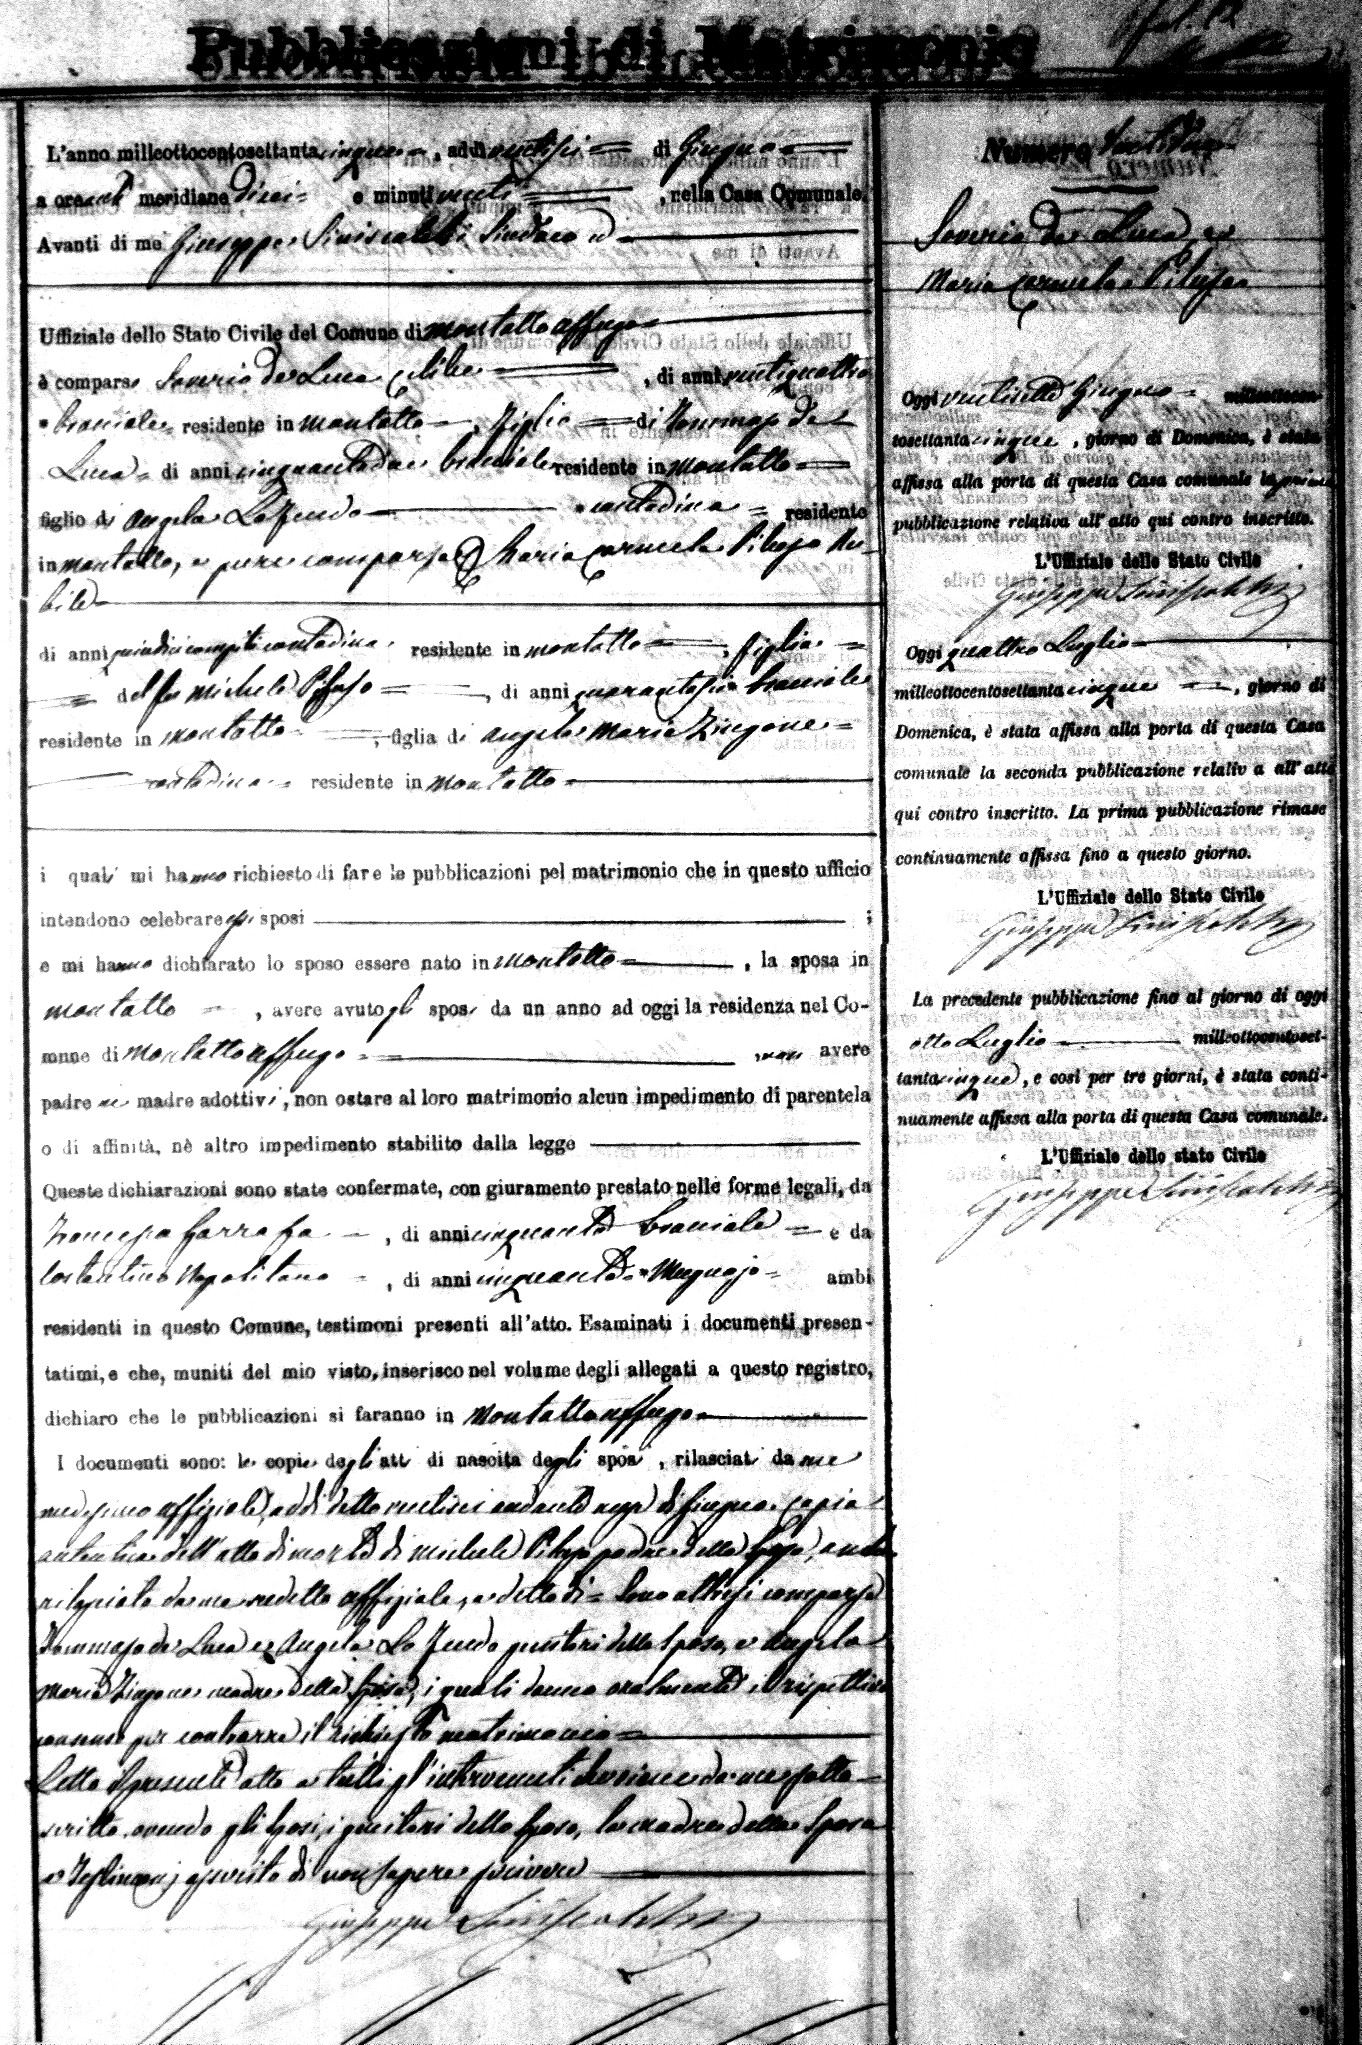 Pubblicazioni di Matrimonio
fol. 12
L'anno milleottocentosettanta cinque, addì ventisei di Giugno
a ore anti meridiane dieci e minuti venti, nella Casa Comunale.
Avanti di me Giuseppe Siniscalchi Sindaco ed
Uffiziale dello Stato Civile del Comune di Montalto Uffugo
è comparso Saverio de Luca celibe, di anni ventiquattro
bracciale residente in Montalto, figlio di Tommaso de
Luca di anni cinquantadue bracciale residente in Montalto
figlio di Angela Lo Feudo contadina residente
in Montalto, e pure comparsa Maria Carmela Piluso Nu-
bile
di anni quindici compiti contadina residente in Montalto, figlia
del fu Michele Piluso, di anni quarantasei bracciale
residente in Montalto, figlia di Angela Maria Zingone
contadina residente in Montalto
i quali mi hanno richiesto di fare le pubblicazioni pel matrimonio che in questo ufficio
intendono celebrare essi sposi ;
e mi hanno dichiarato lo sposo essere nato in Montalto, la sposa in
Montalto, avere avuto gli sposi da un anno ad oggi la residenza nel Co-
mune di Montalto Uffugo, non avere
padre nè madre adottivi, non ostare al loro matrimonio alcun impedimento di parentela
o di affinità, nè altro impedimento stabilito dalla legge
Queste dichiarazioni sono state confermate, con giuramento prestato nelle forme legali, da
Francesco Garrafa, di anni cinquanta bracciale e da
Costantino Napolitano, di anni cinquanta Mugnajo ambi
residenti in questo Comune, testimoni presenti all'atto. Esaminati i documenti presen-
tatimi, e che, muniti del mio visto, inserisco nel volume degli allegati a questo registro,
dichiaro che le pubblicazioni si faranno in Montalto Uffugo
I documenti sono: le copie degli atti di nascita degli sposi, rilasciati da me
medesimo Uffiziale, addì detto ventisei andante mese di Giugno. copia
autentica dell'atto di morte di Michele Piluso padre della sposa, anche
rilasciata da me sudetto Uffiziale, e detto dì = Sono altresì comparsi
Tommaso de Luca ed Angela Lo Feudo genitori dello sposo, e Angela
Maria Zingone madre della sposa, i quali danno oralmente il rispettivo
consenso per contrarre il richiesto matrimonio
Letto il presente atto a tutti gl'intervenuti da me sotto-
scritto, avendo gli sposi, i genitori dello sposo, la madre della sposa
e Testimonj asserito di non sapere scrivere
Giuseppe Siniscalchi
Numero Ventidue
Saverio de Luca, e
Maria Carmela Piluso
Oggi ventisette Giugno milleottocen-
tosettanta cinque, giorno di Domenica, è stata
affissa alla porta di questa Casa comunale la prima
pubblicazione relativa all'atto qui contro inscritto.
L'Uffiziale dello Stato Civile
Giuseppe Siniscalchi
Oggi quattro Luglio
milleottocentosettanta cinque, giorno di
Domenica, è stata affissa alla porta di questa Casa
comunale la seconda pubblicazione relativ a all'atto
qui contro inscritto. La prima pubblicazione rimase
continuamente affissa fino a questo giorno.
L'Uffiziale dello Stato Civile
Giuseppe Siniscalchi
La precedente pubblicazione fino al giorno di oggi
otto Luglio milleottocentoset-
tanta cinque, e così per tre giorni, è stata conti-
nuamente affissa alla porta di questa Casa comunale.
L'Uffiziale dello stato Civile
Giuseppe Siniscalchi